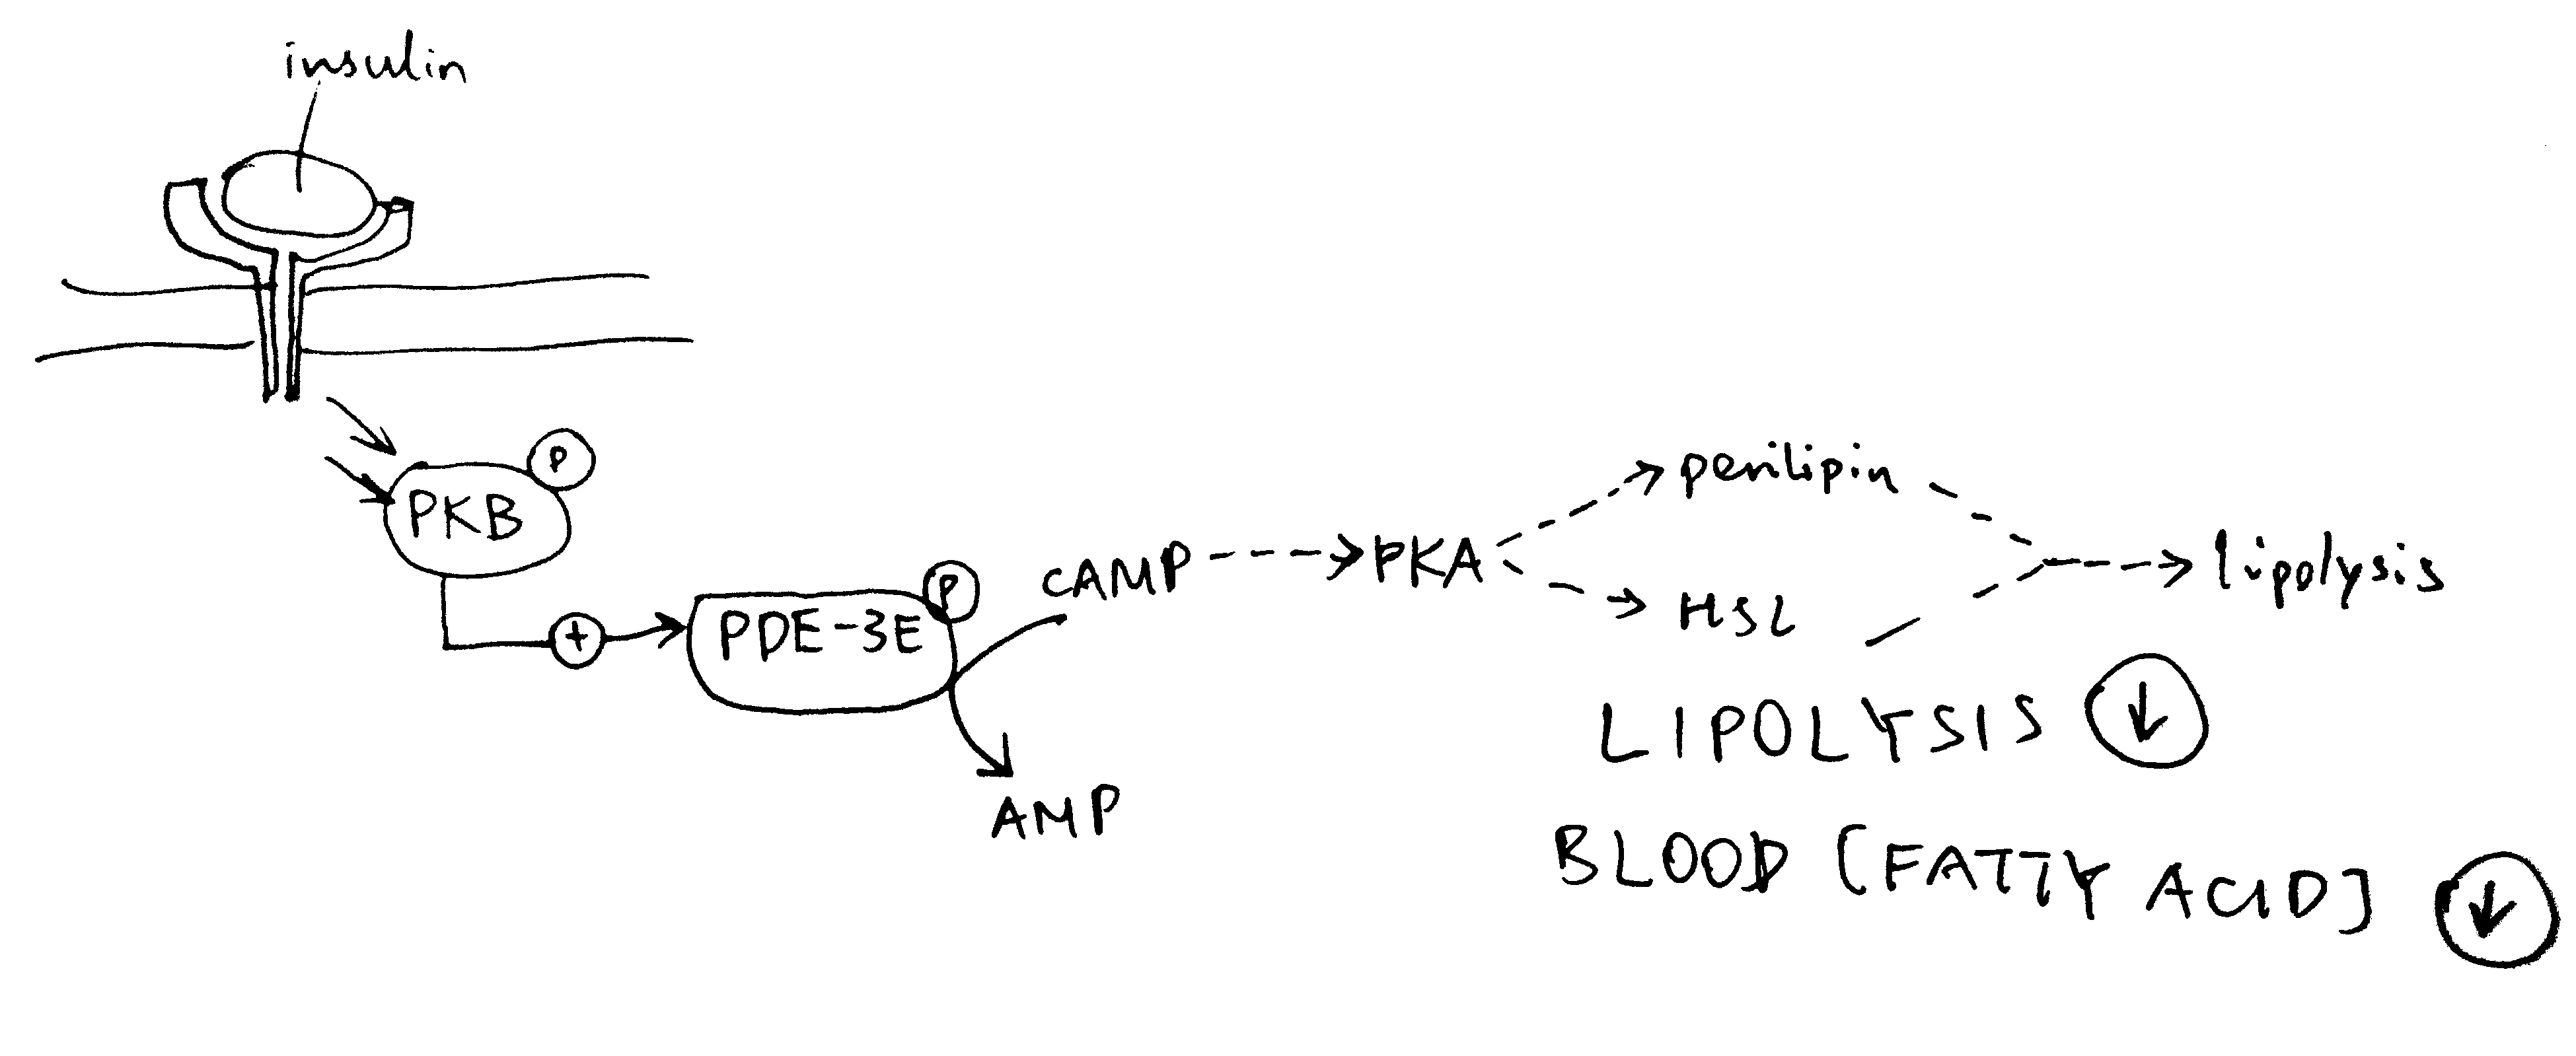 insulin
P
PKB
+
P
PDE-3E
cAMP
AMP
PKA
perilipin
HSL
lipolysis
LIPOLYSIS ↓
BLOOD [FATTY ACID] ↓